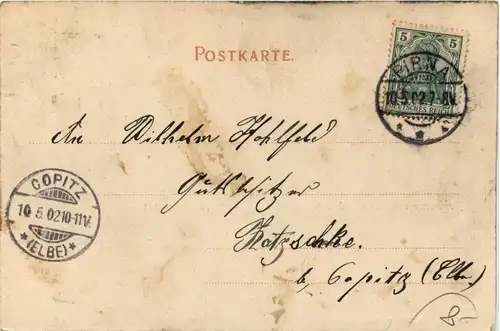 POSTKARTE.
5 5
DEUTSCHES REICH
PIRNA
10.5.02.7-8V.
An Wilhelm Hohlfeld
Gutsbesitzer
COPITZ
10.5.02.10-11V.
*(ELBE)*
Natzschke.
b. Copitz (Elbe.)
8-